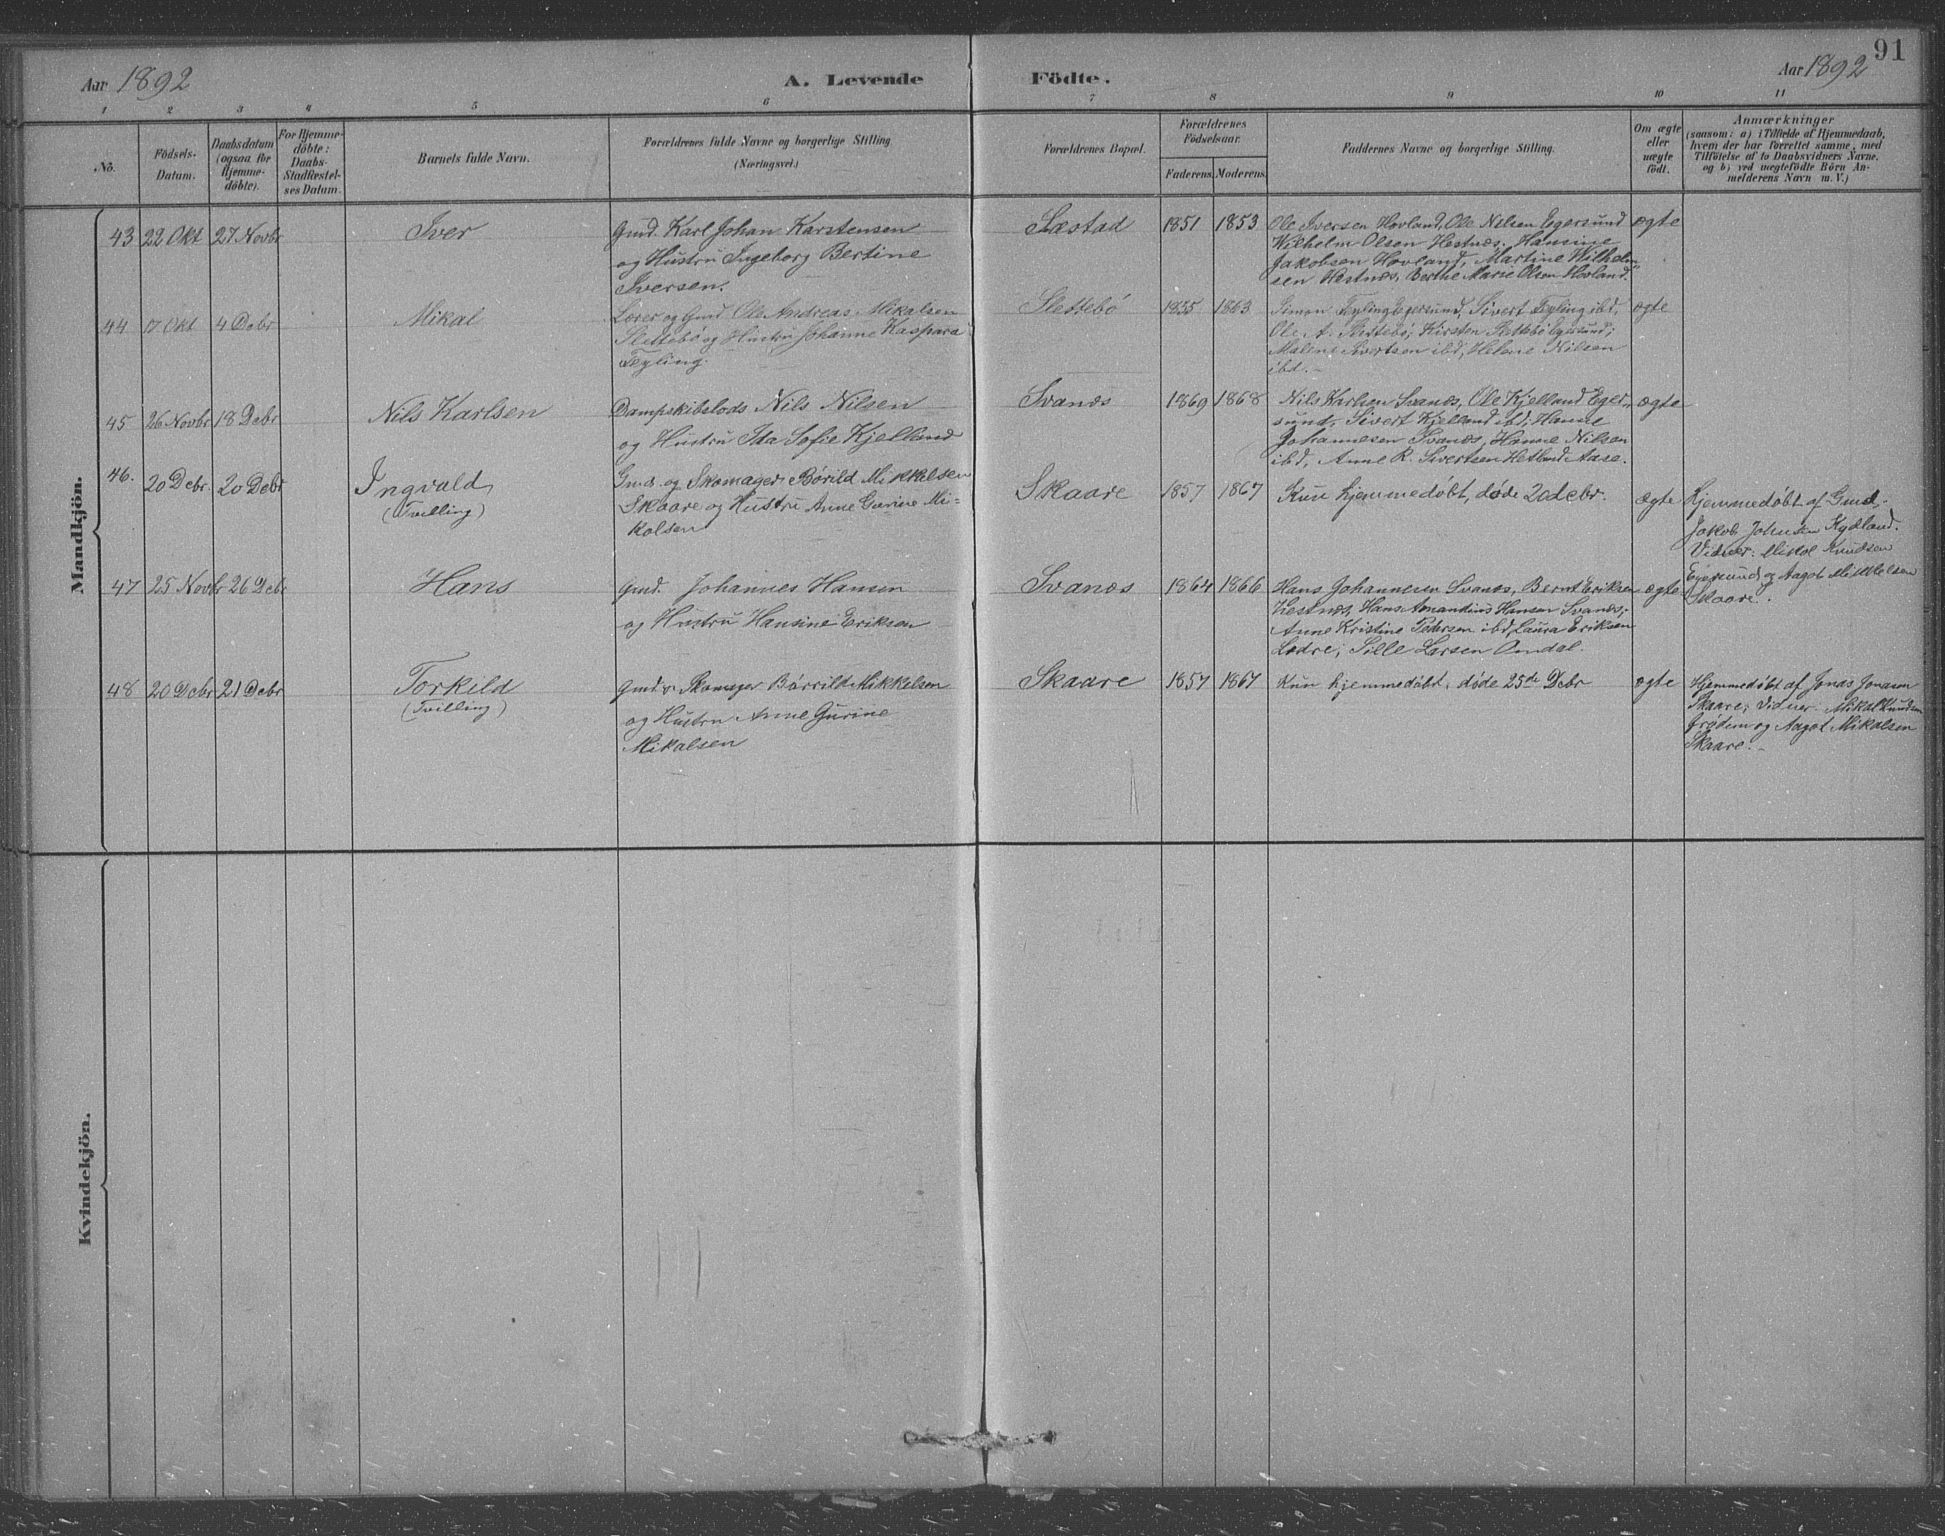 91
Aar 1892 A. Levende Födte. Aar 1892
1 2 3 4 5 6 7 8 9 10 11
No.
Födsels-
Datum.
Daabsdatum
(ogsaa for
Hjemme-
döbte).
For Hjemme-
döbte:
Daabs-
Stadfæstel-
ses Datum.
Barnets fulde Navn.
Forældrenes fulde Navne og borgerlige Stilling
(Næringsvei.)
Forældrenes Bopæl.
Forældrenes
Födselsaar.
Faderens. Moderens.
Faddernes Navne og borgerlige Stilling.
Om ægte
eller
uægte
födt.
Anmærkninger
(saasom: a) i Tilfælde af Hjemmedaab,
hvem der har forrettet samme, med
Tilföielse af to Daabsvidners Navne,
og b) ved uægtefödte Börn An-
melderens Navn m. V.)
Mandkjön.
43 22 Okt 27 Novbr Iver
Gmd. Karl Johan Karstensen
og Hustru Ingeborg Bertine
Iversen.
Sæstad 1851 1853
Ole Iversen Hovland, Ole Nilsen Egersund
Wilhelm Olsen Hestnæs, Hansine
Jakobsen Hovland, Martine Wilhelm
sen Hestnæs, Berthe Marie Olsen Hovland.
ægte
44 17 Okt 4 Debr Mikal
Lærer og Gmd Ole Andreas Mikalsen
Slettebø og Hustru Johanne Kaspara
Tegling.
Slettebö 1855 1863
Simon Tegling Egersund, Sivert Tegling ibd,
Ole A. Slettebø, Kirsten Slettebø Egersund;
Malene Sivertsen ibd, Helene Nilsen
ibd.
ægte
45 26 Novbr 18 Debr Nils Karlsen
Dampskibslods Nils Nilsen
og Hustru Ida Sofie Kjelland
Svanæs 1869 1868
Nils Karlsen Svanæs, Ole Kjelland Eger-
sund, Sivert Kjelland ibd, Hanne
Johannesen Svanæs, Hanne Nilsen
ibd, Anne R. Sivertsen Hetland Aase.
ægte
46. 20 Debr. 20 Debr Ingvald
(Tvilling)
Gmd. og Skomager Børild Mikkalsen
Skaare og Hustru Anne Gurine Mi-
kalsen
Skaare 1857 1867
Kun hjemmedøbt, døde 20 debr.
ægte
Hjemmedøbt af Gmd.
Jakob Johnsen Kydland.
Vidner: Mikal Knudsen
Egersund og Aagot Mikkelsen
Skaare.
47 25 Novbr 26 Debr Hans
Gmd. Johannes Hansen
og Hustru Hansine Eriksen
Svanæs 1864 1866
Hans Johannesen Svanæs, Bernt Eriksen
Hestnæs, Hans Amandius Hansen Svanæs,
Anne Kristine Pedersen ibd, Laura Eriksen
Lædre; Sille Larsen Omdal.
ægte
48 20 Debr 21 Debr Torkild
(Tvilling)
Gmd. Skomager Børrild Mikkelsen
og Hustru Anne Gurine
Mikalsen
Skaare 1857 1867
Kun hjemmedøbt, døde 25de Debr
ægte
Hjemmedøbt af Jonas Jonasen
Skaare; Vidner. Mikal Knudsen
Grødem og Aagot Mikalsen
Skaare.
Kvindekjön.